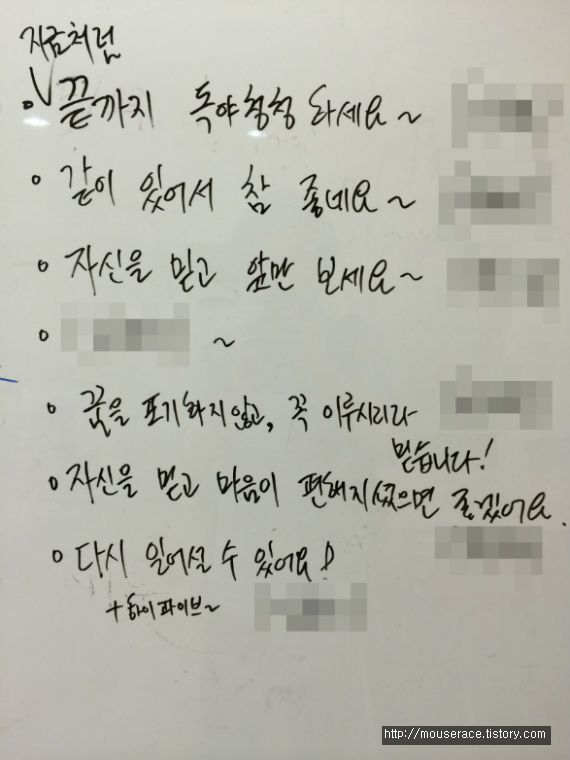 지금처럼
∨끝까지 독야청청 하세요~
같이 있어서 참 좋네요~
자신을 믿고 앞만 보세요~
~
꿈을 포기하지않고, 꼭 이루시리라
믿습니다!
자신을 믿고 마음이 편해지셨으면 좋겠어요.
다시 일어설 수 있어요!
+하이파이브~
http://mouserace.tistory.com